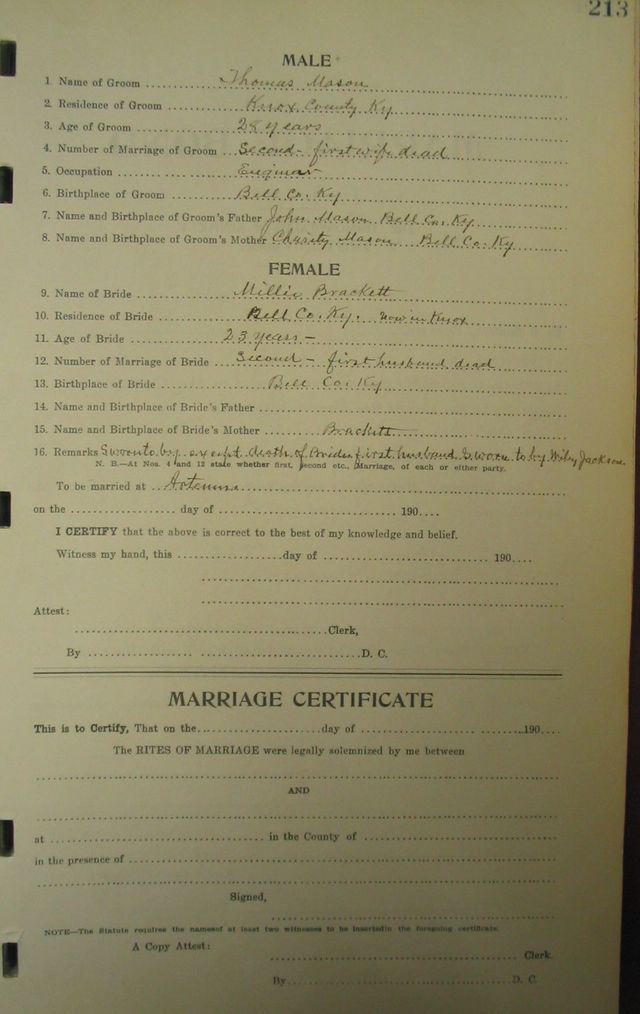 213
MALE
1. Name of Groom Thomas Mason
2. Residence of Groom Knox County Ky
3. Age of Groom 28 years
4. Number of Marriage of Groom Second - first wife dead
5. Occupation
6. Birthplace of Groom Bell Co. Ky
7. Name and Birthplace of Groom's Father John Mason Bell Co. Ky
8. Name and Birthplace of Groom's Mother Charity Mason Bell Co. Ky
FEMALE
9. Name of Bride Millie Brackett
10. Residence of Bride Bell Co. Ky. now in Knox
11. Age of Bride 23 years -
12. Number of Marriage of Bride Second - first husband dead
13. Birthplace of Bride Bell Co. Ky
14. Name and Birthplace of Bride's Father
15. Name and Birthplace of Bride's Mother Brackett
16. Remarks Sworn to by except death of Brides first husband Sworn to by Wiley Jackson
N. B.—At Nos. 4 and 12 state whether first, second etc., Marriage, of each or either party.
To be married at Artemus
on the day of 190
I CERTIFY that the above is correct to the best of my knowledge and belief.
Witness my hand, this day of 190
Attest:
Clerk,
By D. C.
MARRIAGE CERTIFICATE
This is to Certify, That on the day of 190
The RITES OF MARRIAGE were legally solemnized by me between
AND
at in the County of
in the presence of
Signed,
NOTE—The Statute requires the namesof at least two witnesses to be insertedin the foregoing certificate.
A Copy Attest:
Clerk.
By D. C.